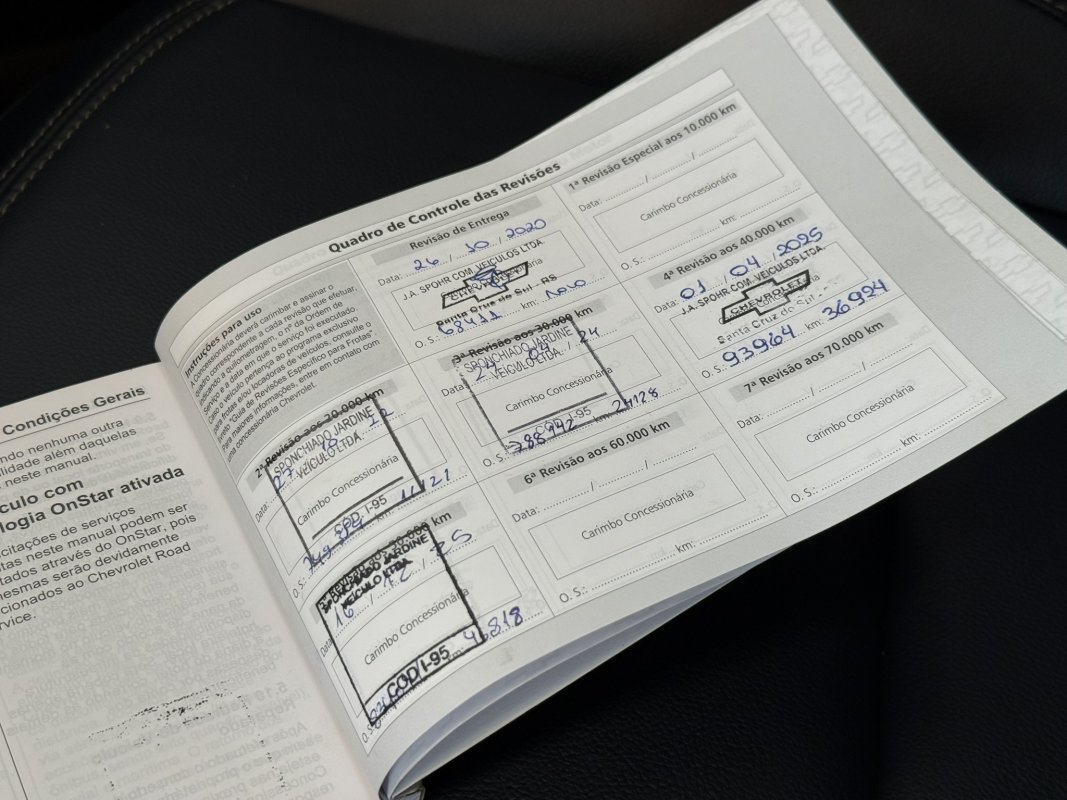 Condições Gerais
ndo nenhuma outra
ilidade além daquelas
neste manual.
culo com
logia OnStar ativada
icitações de serviços
tas neste manual podem ser
tados através do OnStar, pois
mesmas serão devidamente
cionados ao Chevrolet Road
rvice.
Quadro de Controle das Revisões
Instruções para uso
A Concessionária deverá carimbar e assinar o
quadro correspondente a cada revisão que efetuar,
indicando a quilometragem, o nº da Ordem de
Serviço e a data em que o serviço foi executado.
Caso o veículo pertença ao programa exclusivo
para frotas e/ou locadoras de veículos, consulte o
livreto "Guia de Revisões Específico para Frotas".
Para maiores informações, entre em contato com
uma concessionária Chevrolet.
Revisão de Entrega
Data: 26 / 10 / 2020
J.A. SPOHR COM. VEICULOS LTDA.
CHEVROLET
Santa Cruz do Sul - RS
O. S.: 68411 km:
1ª Revisão Especial aos 10.000 km
Data: / /
Carimbo Concessionária
O. S.: km:
2ª Revisão aos 20.000 km
SPONCHIADO JARDINE
VEÍCULO LTDA.
Data: 27
Carimbo Concessionária
COD I-95
O. S.:
3ª Revisão aos 30.000 km
SPONCHIADO JARDINE
VEÍCULO LTDA.
Data: 24 / / 24
Carimbo Concessionária
COD I-95
O. S.: km: 24128
4ª Revisão aos 40.000 km
Data: 01 / 04 / 2025
J.A. SPOHR COM. VEICULOS LTDA.
CHEVROLET
Santa Cruz do Sul -
O. S.: 93964 km: 36924
Revisão aos 50.000 km
SPONCHIADO JARDINE
VEÍCULO LTDA.
Data: 16 / 12 / 25
Carimbo Concessionária
COD I-95
O. S.: km:
6ª Revisão aos 60.000 km
Data: / /
Carimbo Concessionária
O. S.: km:
7ª Revisão aos 70.000 km
Data: / /
Carimbo Concessionária
O. S.: km: